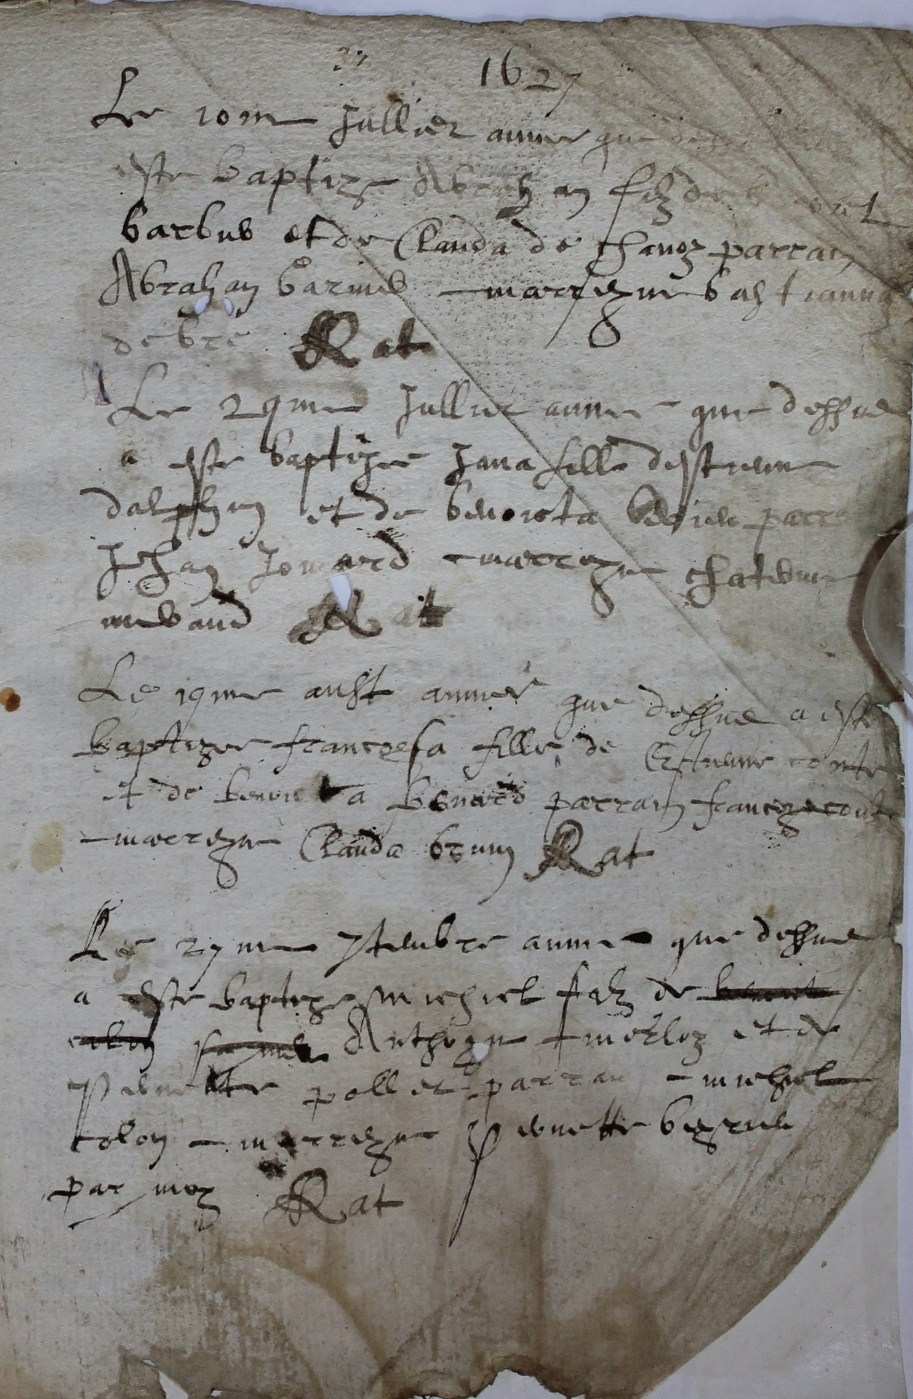 1627
Le 10me Jullier annee que
este baptize Abrahan filz de
barbus et de Clauda de chanoz parrain
Abrahan barius marrezne bastianna
debre Rat
Le 29me Jullier annee que dessus
a este baptizee Jana fille destienne
dalphin et de benoicta parr
Jehan Jomard marrezne
Rat
Le 19me aust annee que dessus a este
baptizee francoesa fille de Estienne conte
et de benoicta benoed parrain francoz conte
marrezne Clauda brun Rat
Le 27me 7tembre annee que dessus
a este baptize michiel filz de benoit
colon Anthoyne merloz et de
pernette pollet parrain michiel
colon marrezne pernette
par moy Rat